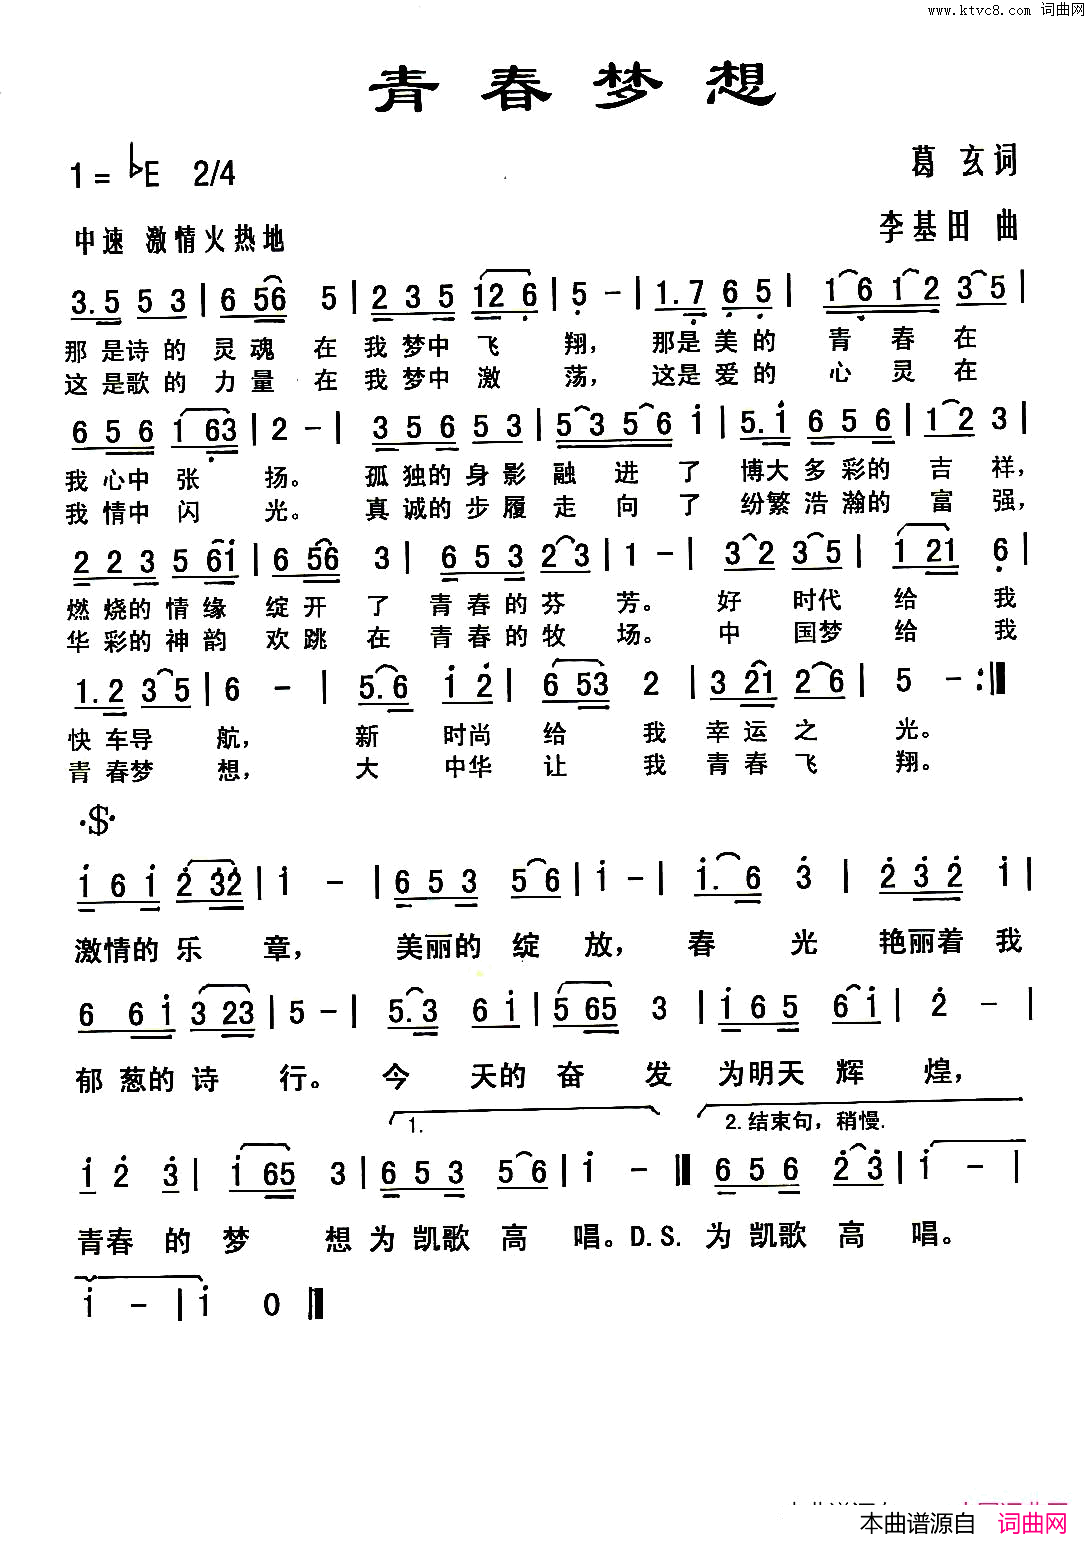 www.ktvc8.com 词曲网
青春梦想
1= ♭E 2/4
葛玄词
中速 激情火热地
李基田 曲
3.5 5 3 | 6 56 5 | 2 3 5 12 6 | 5 - | 1.7 6 5 | 1 6 1 2 3 5 |
那是诗的 灵魂 在我梦中飞 翔，那是美的 青春在
这是歌的 力量 在我梦中激 荡，这是爱的 心灵在
6 5 6 1 63 | 2 - | 3 5 6 5 3 | 5 3 5 6 i | 5.i 6 5 6 | 1 2 3 |
我心中张 扬。孤独的身影融进了博大多彩的吉祥，
我情中闪 光。真诚的步履走向了纷繁浩瀚的富强，
2 2 3 5 6i | 6 56 3 | 6 5 3 2 3 | 1 - | 3 2 3 5 | 1 21 6 |
燃烧的情缘绽开了青春的芬芳。好时代给我
华彩的神韵欢跳在青春的牧场。中国梦给我
1.2 3 5 | 6 - | 5.6 i 2 | 6 53 2 | 3 21 2 6 | 5 - :‖
快车导航，新时尚给我幸运之光。
青春梦想，大中华让我青春飞翔。
·$·
i 6 i 2 32 | i - | 6 5 3 5 6 | i - | i. 6 3 | 2 3 2 i |
激情的乐章，美丽的绽放，春光艳丽着我
6 6 i 3 23 | 5 - | 5.3 6 i | 5 65 3 | i 6 5 6 i | 2 - |
郁葱的诗行。今天的奋发为明天辉煌，
1.
2.结束句，稍慢.
i 2 3 | i 65 3 | 6 5 3 5 6 | i - ‖ 6 5 6 2 3 | i - |
青春的梦想为凯歌高唱。D.S.为凯歌高唱。
i - | i 0 ‖
本曲谱源自 词曲网